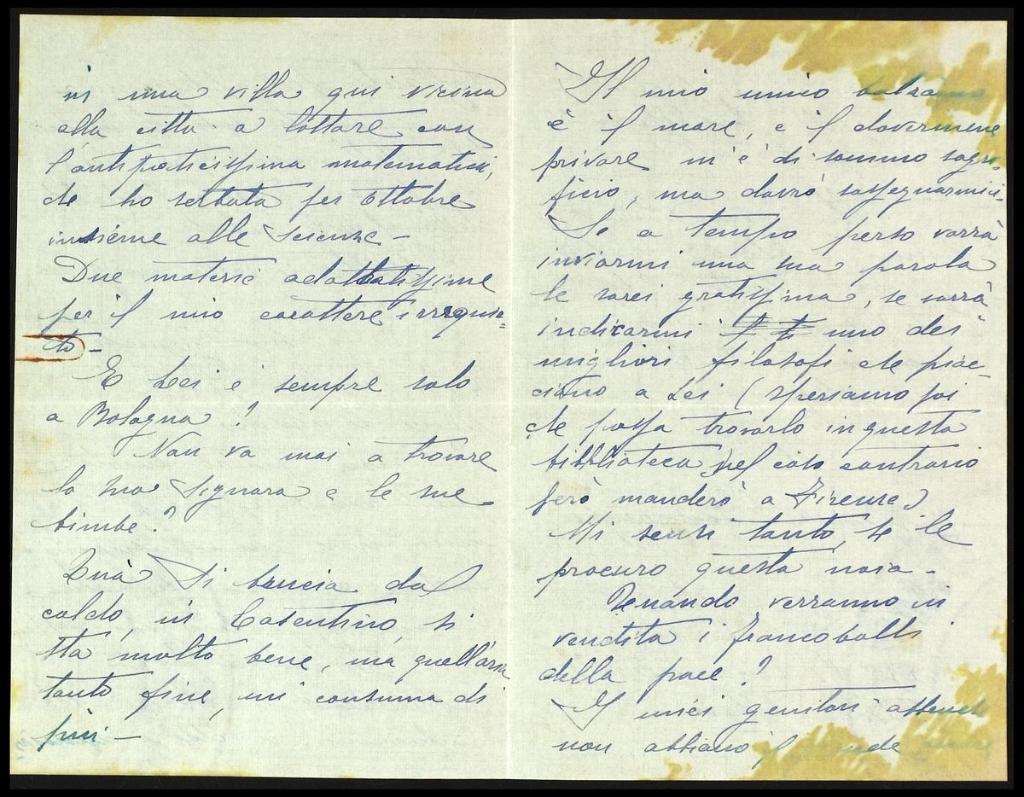 in una villa qui vicina
alla città a lottare con
l'antipaticissima matematica,
che ho serbata per Ottobre
insieme alle Scienze -
Due materie adattatissime
per il mio carattere irrequie=
to -
E Lei è sempre solo
a Bologna?
Non va mai a trovare
la sua Signora e le sue
bimbe?
Quà si brucia dal
caldo, in Casentino, si
sta molto bene, ma quell'aria
tanto fine, mi consuma di
più -
Il mio unico
è il mare, e il dovermene
privare m'è di sommo sagri-
ficio, ma dovrò rassegnarmici.
Se a tempo perso vorrà
inviarmi una sua parola
le sarei gratissima, se vorrà
indicarmi uno dei
migliori filosofi che piac-
ciono a Lei (speriamo poi
che possa trovarlo in questa
biblioteca, nel caso contrario
però manderò a Firenze)
Mi scusi tanto, se le
procuro questa noia -
Quando verranno in
vendita i francobolli
della pace?
I miei genitori
non abbiano il